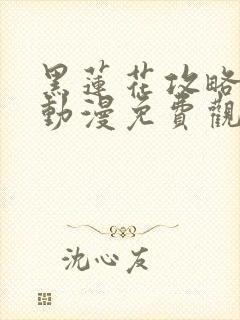 黑蓮花攻略
動漫免費觀
沈心友